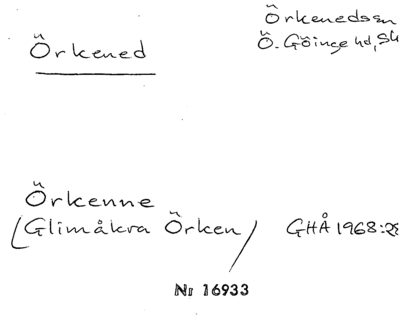 Örkened
Örkenedssn
Ö. Göinge hd, Sk
Örkenne
(Glimåkra Örken) GHÅ 1968:28
Nr 16933